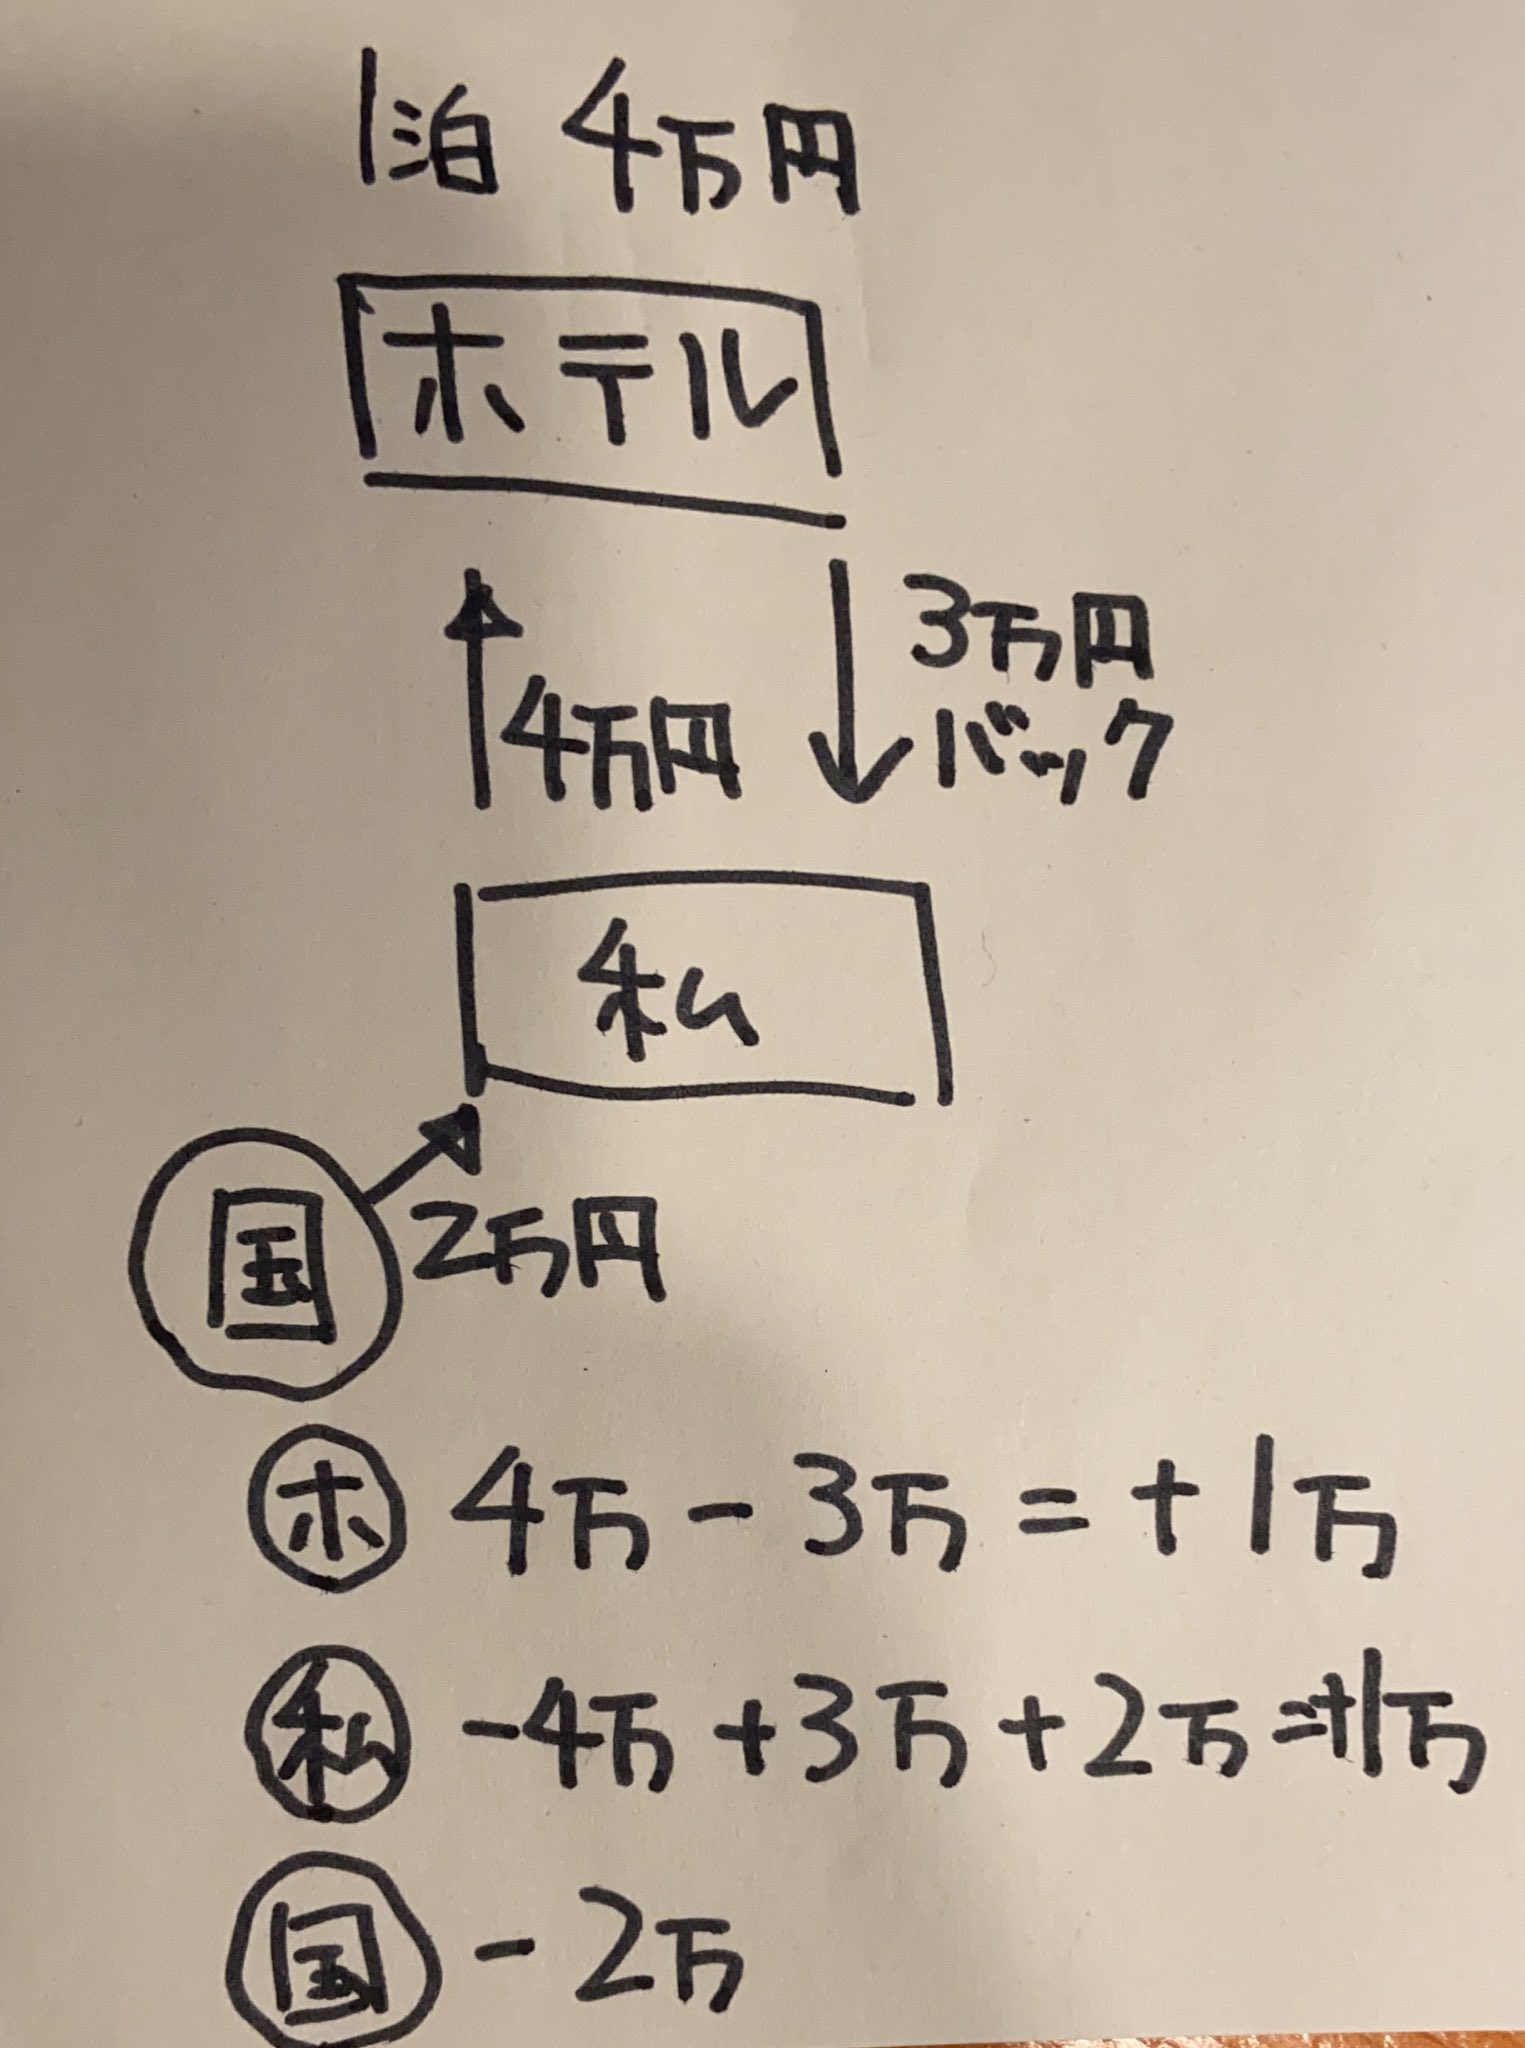 1泊 4万円
ホテル
4万円
3万円
バック
私
国
2万円
ホ 4万-3万=+1万
私 -4万+3万+2万=+1万
国 -2万